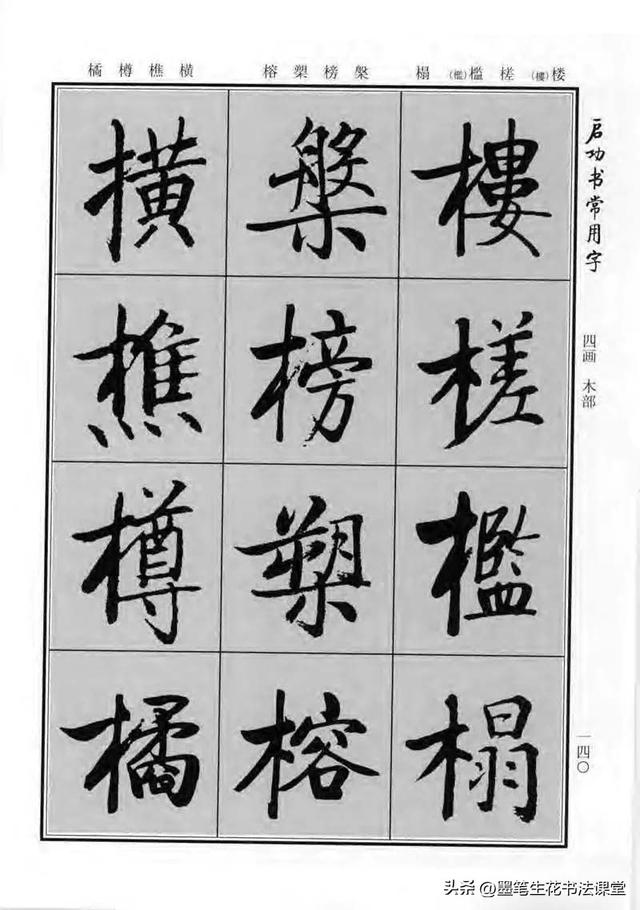 楼(樓) 槎 槛(檻) 榻 槃 榜 槊 榕 横 樵 樽 橘
启功书常用字
四画 木部
一四〇
樓槎檻榻
槃榜槊榕
横樵樽橘
头条@墨笔生花书法课堂